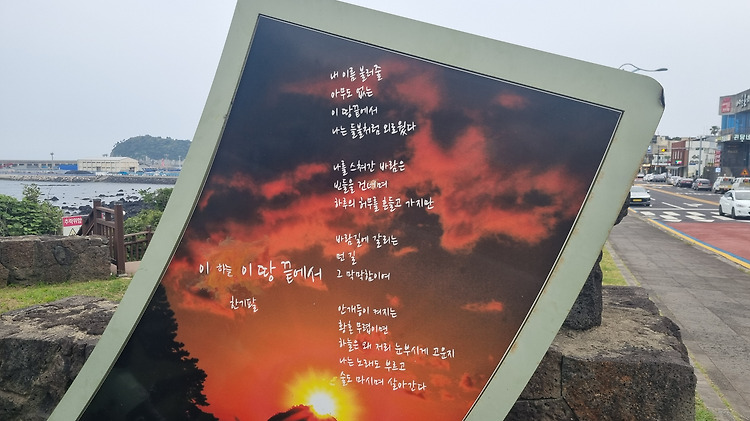 이 하늘 이 땅 끝에서
한기팔
내 이름 불러줄
아무도 없는
이 땅끝에서
나는 들불처럼 외로웠다
나를 스쳐간 바람은
빈들을 건네며
하루의 허무를 흔들고 가지만
바람길에 갈리는
먼 길
그 막막함이여
안개등이 켜지는
황혼 무렵이면
하늘은 왜 저리 눈부시게 고운지
나는 노래도 부르고
술도 마시며 살아간다